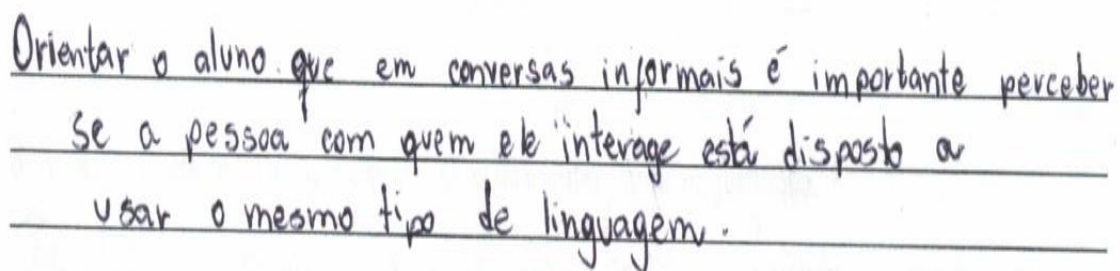 Orientar o aluno que em conversas informais é importante perceber
se a pessoa com quem ele interage está disposto a
usar o mesmo tipo de linguagem.